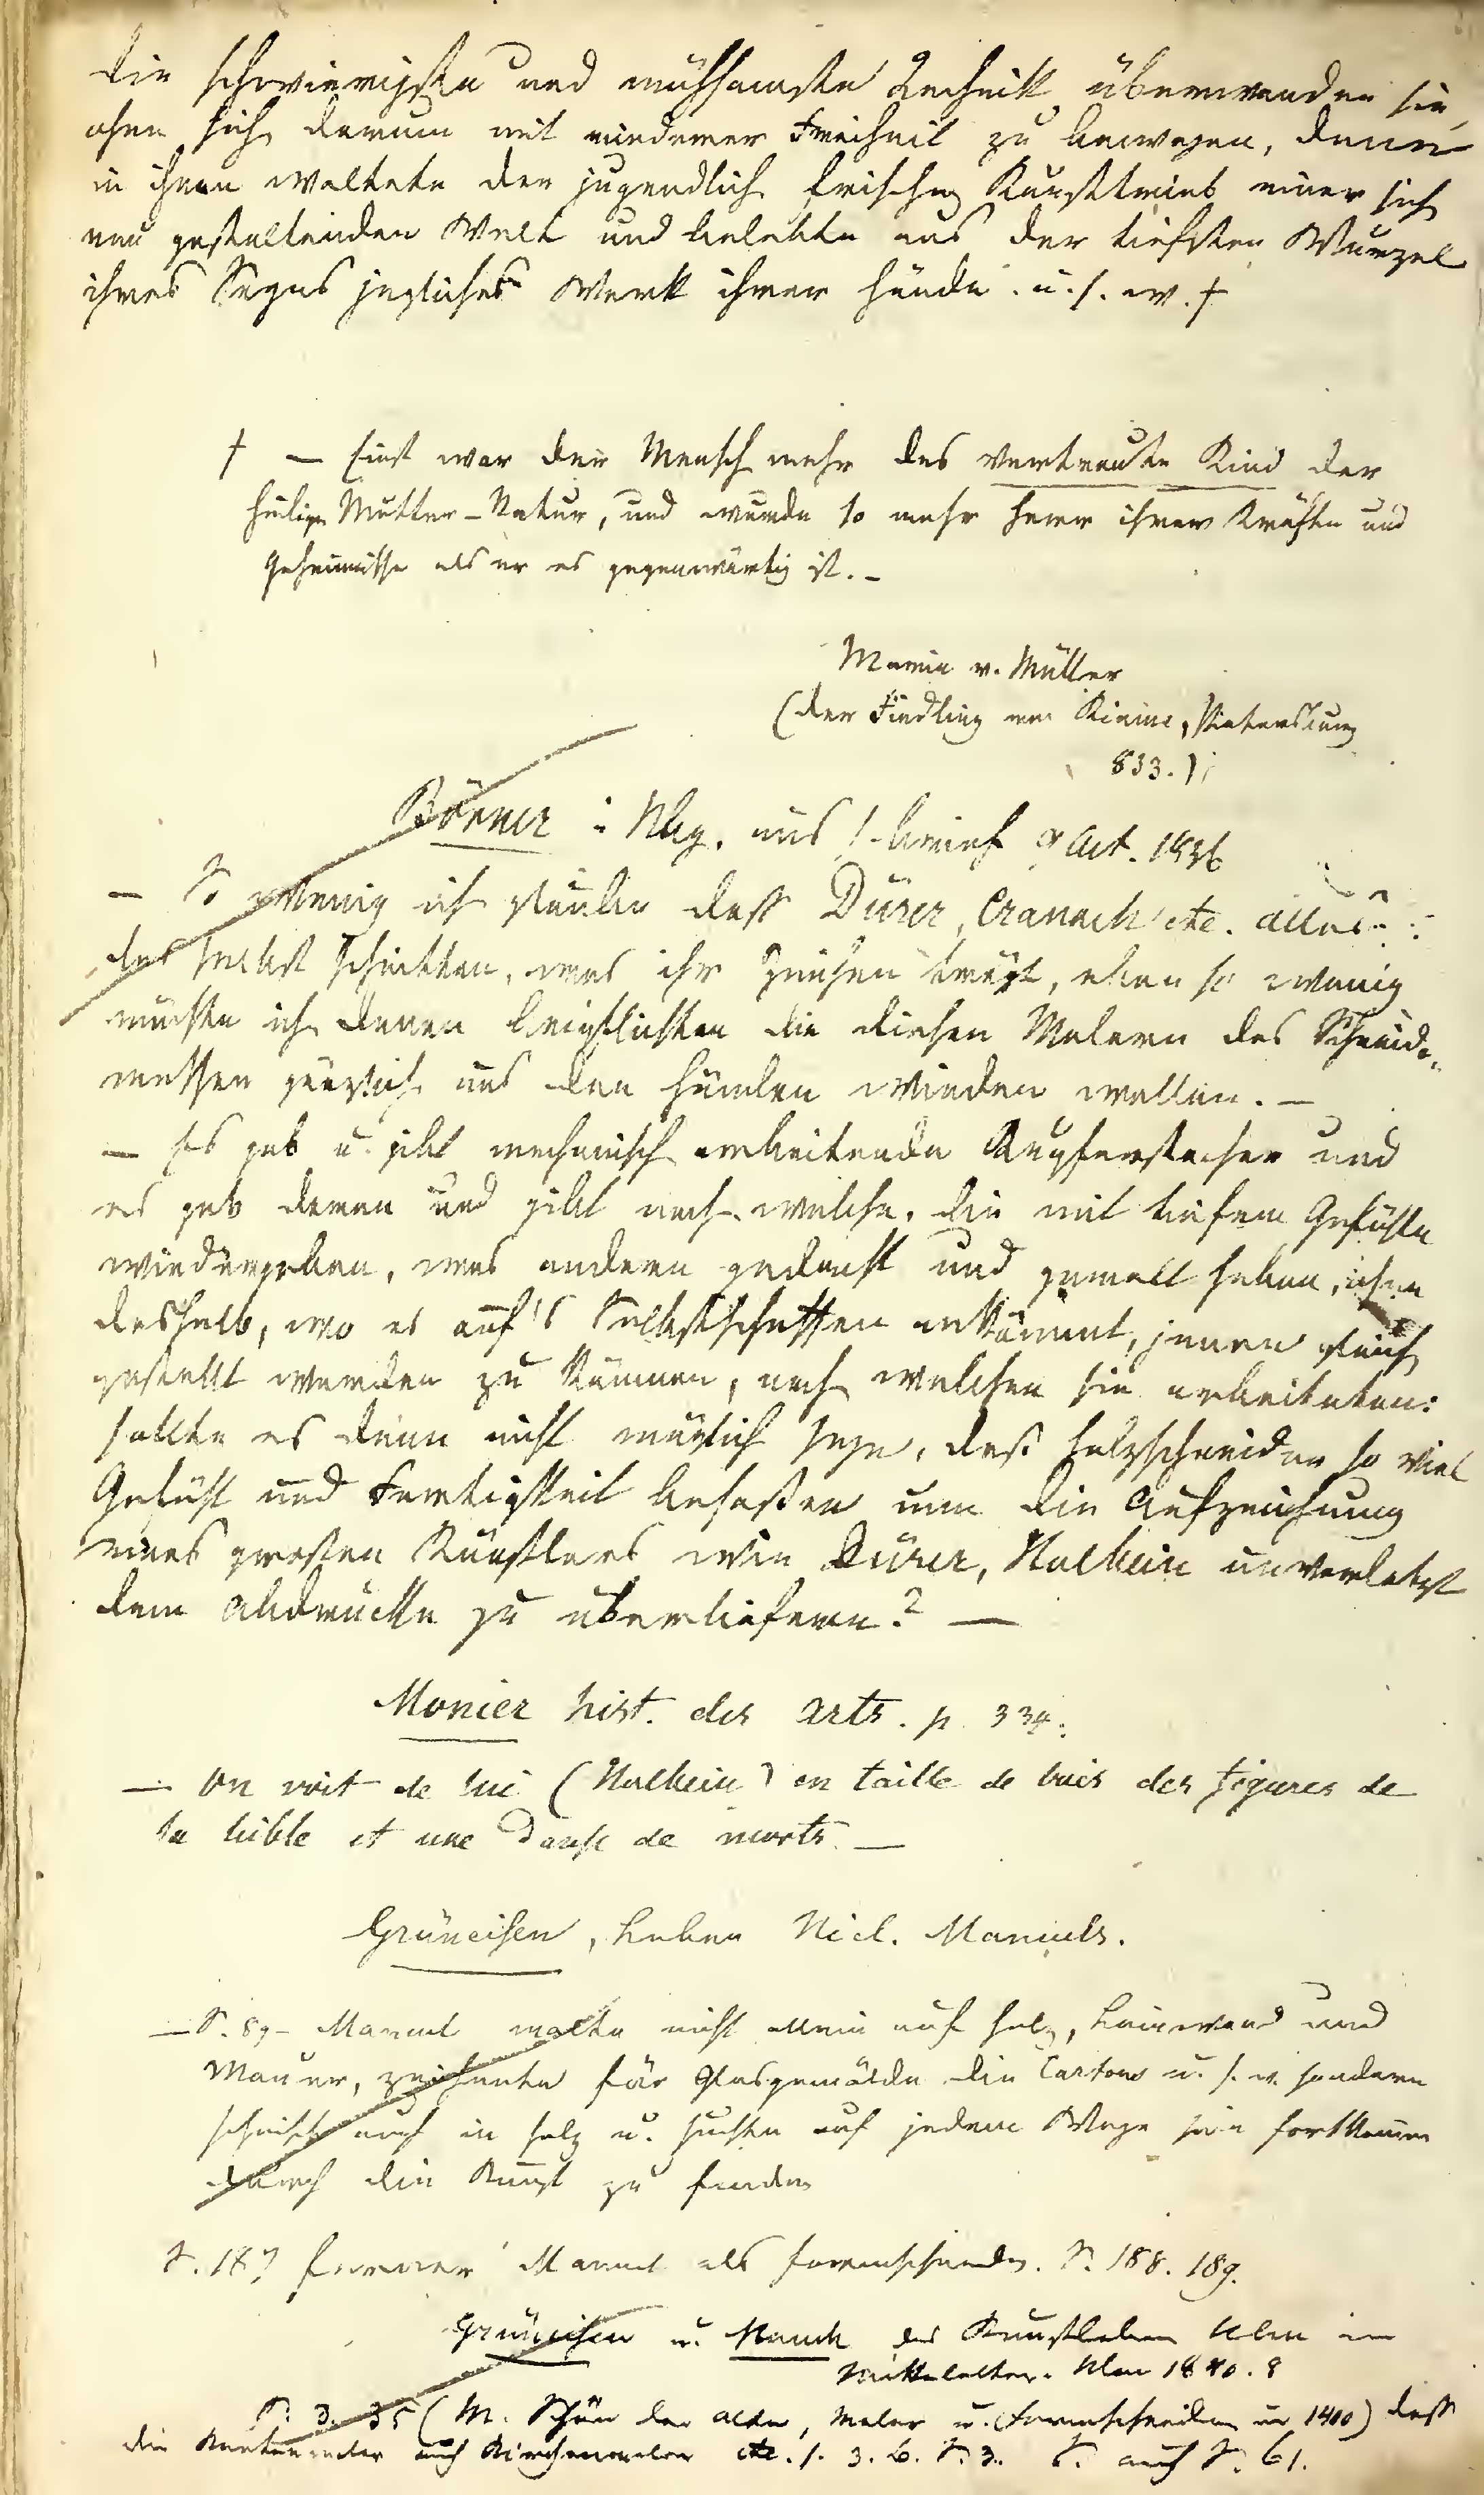 die schwierigsten und mühsamste Technik überwanden sie,
ohne sich darum mit minderer Freiheit zu bewegen, denn
in ihnen waltete der jugendlich frische Kunsttrieb einer sich
neu gestaltenden Welt und belebte aus der tiefsten Wurzel
ihres Seyns jegliches Werk ihrer Hände. u. s. w. †
† — Einst war der Mensch mehr das vertraute Kind der
heiligen Mutter-Natur, und wurde so mehr Herr ihrer Kräfte und
Geheimnisse als er es gegenwärtig ist. —
Maria v. Müller
(der Findling von
833.)
Börner i. Nbg. aus s. Brief 9 Oct. 1836
— So wenig ich glaube daß Dürer, Cranach etc. alles
das selbst schnitten, was ihr Zeichen trägt, eben so wenig
möchte ich denen beipflichten die diesen Malern das Schneide-
messer gänzlich aus den Händen winden wollen. —
— Es gab u. gibt mechanisch arbeitende Kupferstecher und
es gab deren und gibt noch welche, die mit tiefem Gefühle
wiedergeben, was andere gedacht und gemalt haben, ohne
deshalb, wo es auf's Selbstschaffen ankömmt, jenen gleich
gestellt werden zu können, nach welchen sie arbeiteten:
sollte es denn nicht möglich seyn, daß Holzschneider so viel
Gefühl und Fertigkeit besaßen um die Aufzeichnung
eines großen Künstlers wie Dürer, Holbein unverletzt
dem Abdrucke zu überliefern? —
Monier hist. des arts. p. 334.
— On voit de lui (Holbein) en taille de bois des figures de
la bible et une Danse de morts. —
Grüneisen, Leben Nicl. Manuels.
— S. 89 — Manuel malte nicht allein auf Holz, Leinwand und
Mauer, zeichnete für Glasgemälde die Cartons u. s. w. sondern
schnitt auch in Holz u. suchte auf jedem Wege sein Fortkommen
durch die Kunst zu finden
S. 187 ferner Manuel als Formschneider. S. 188. 189.
Grüneisen u. Mauch das Kunstleben Ulm im
Mittelalter. Ulm 1840. 8
S. 3. 35 (M. Schön der alte, Maler u. Formschneider um 1400) daß
die Kartenmaler auch Kirchenmaler etc. s. 3. 6. S. 3. S. auch S. 61.